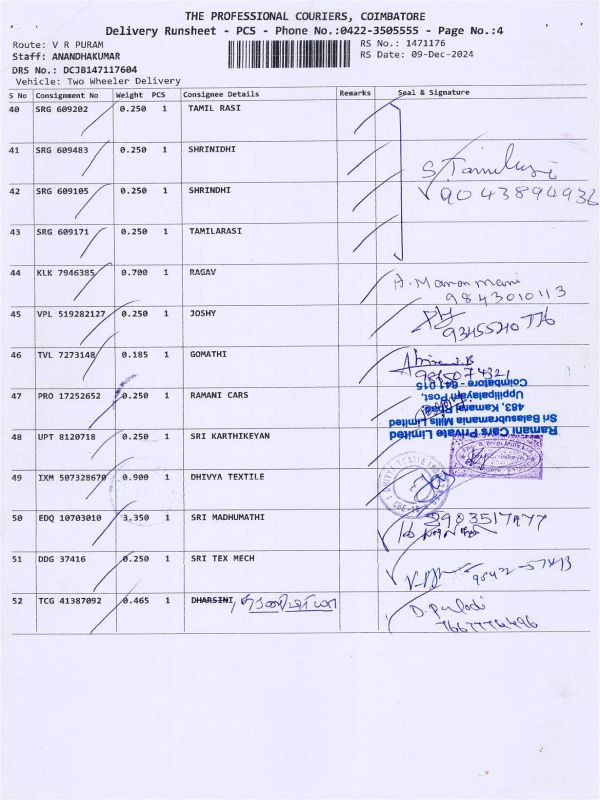 THE PROFESSIONAL COURIERS, COIMBATORE
Delivery Runsheet - PCS - Phone No.:0422-3505555 - Page No.:4
Route: V R PURAM
RS No.: 1471176
Staff: ANANDHAKUMAR
RS Date: 09-Dec-2024
DRS No.: DCJB147117604
Vehicle: Two Wheeler Delivery
S No Consignment No Weight PCS Consignee Details Remarks Seal & Signature
40 SRG 609202 0.250 1 TAMIL RASI
41 SRG 609483 0.250 1 SHRINIDHI
S.Tamilrasi
42 SRG 609105 0.250 1 SHRINDHI
9043894936
43 SRG 609171 0.250 1 TAMILARASI
44 KLK 7946385 0.700 1 RAGAV A. Manonmani
9843010113
45 VPL 519282127 0.250 1 JOSHY
46 TVL 7273148 0.185 1 GOMATHI
47 PRO 17252652 0.250 1 RAMANI CARS
Ramani Cars Private Limited
Sri Balasubramania Mills Limited
483, Kamaraj Road
Uppilipalayam Post,
Coimbatore - 641 015
48 UPT 8120718 0.250 1 SRI KARTHIKEYAN
49 IXM 507328670 0.900 1 DHIVYA TEXTILE
50 EDQ 10703010 3.350 1 SRI MADHUMATHI
51 DDG 37416 0.250 1 SRI TEX MECH
52 TCG 41387092 0.465 1 DHARSINI